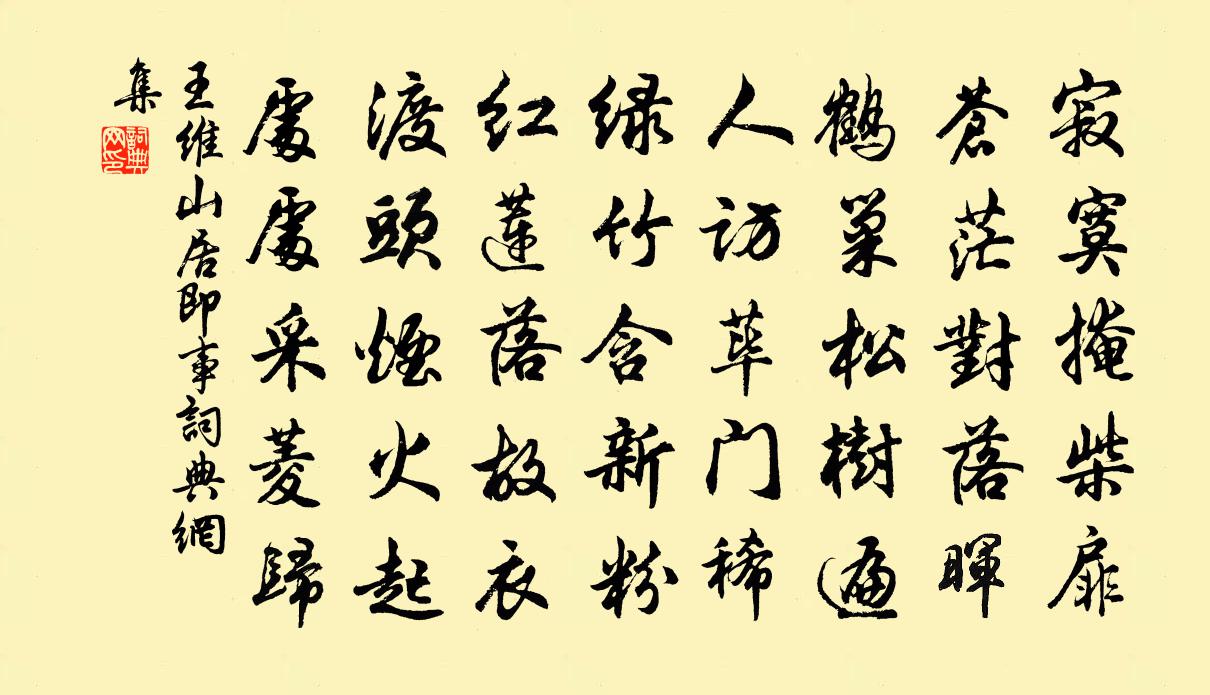 寂寞掩柴扉
蒼茫對落暉
鶴巢松樹遍
人訪蓽门稀
緑竹含新粉
紅蓮落故衣
渡頭煙火起
處處采菱歸
王維山居即事詞典網
集
詞典网印